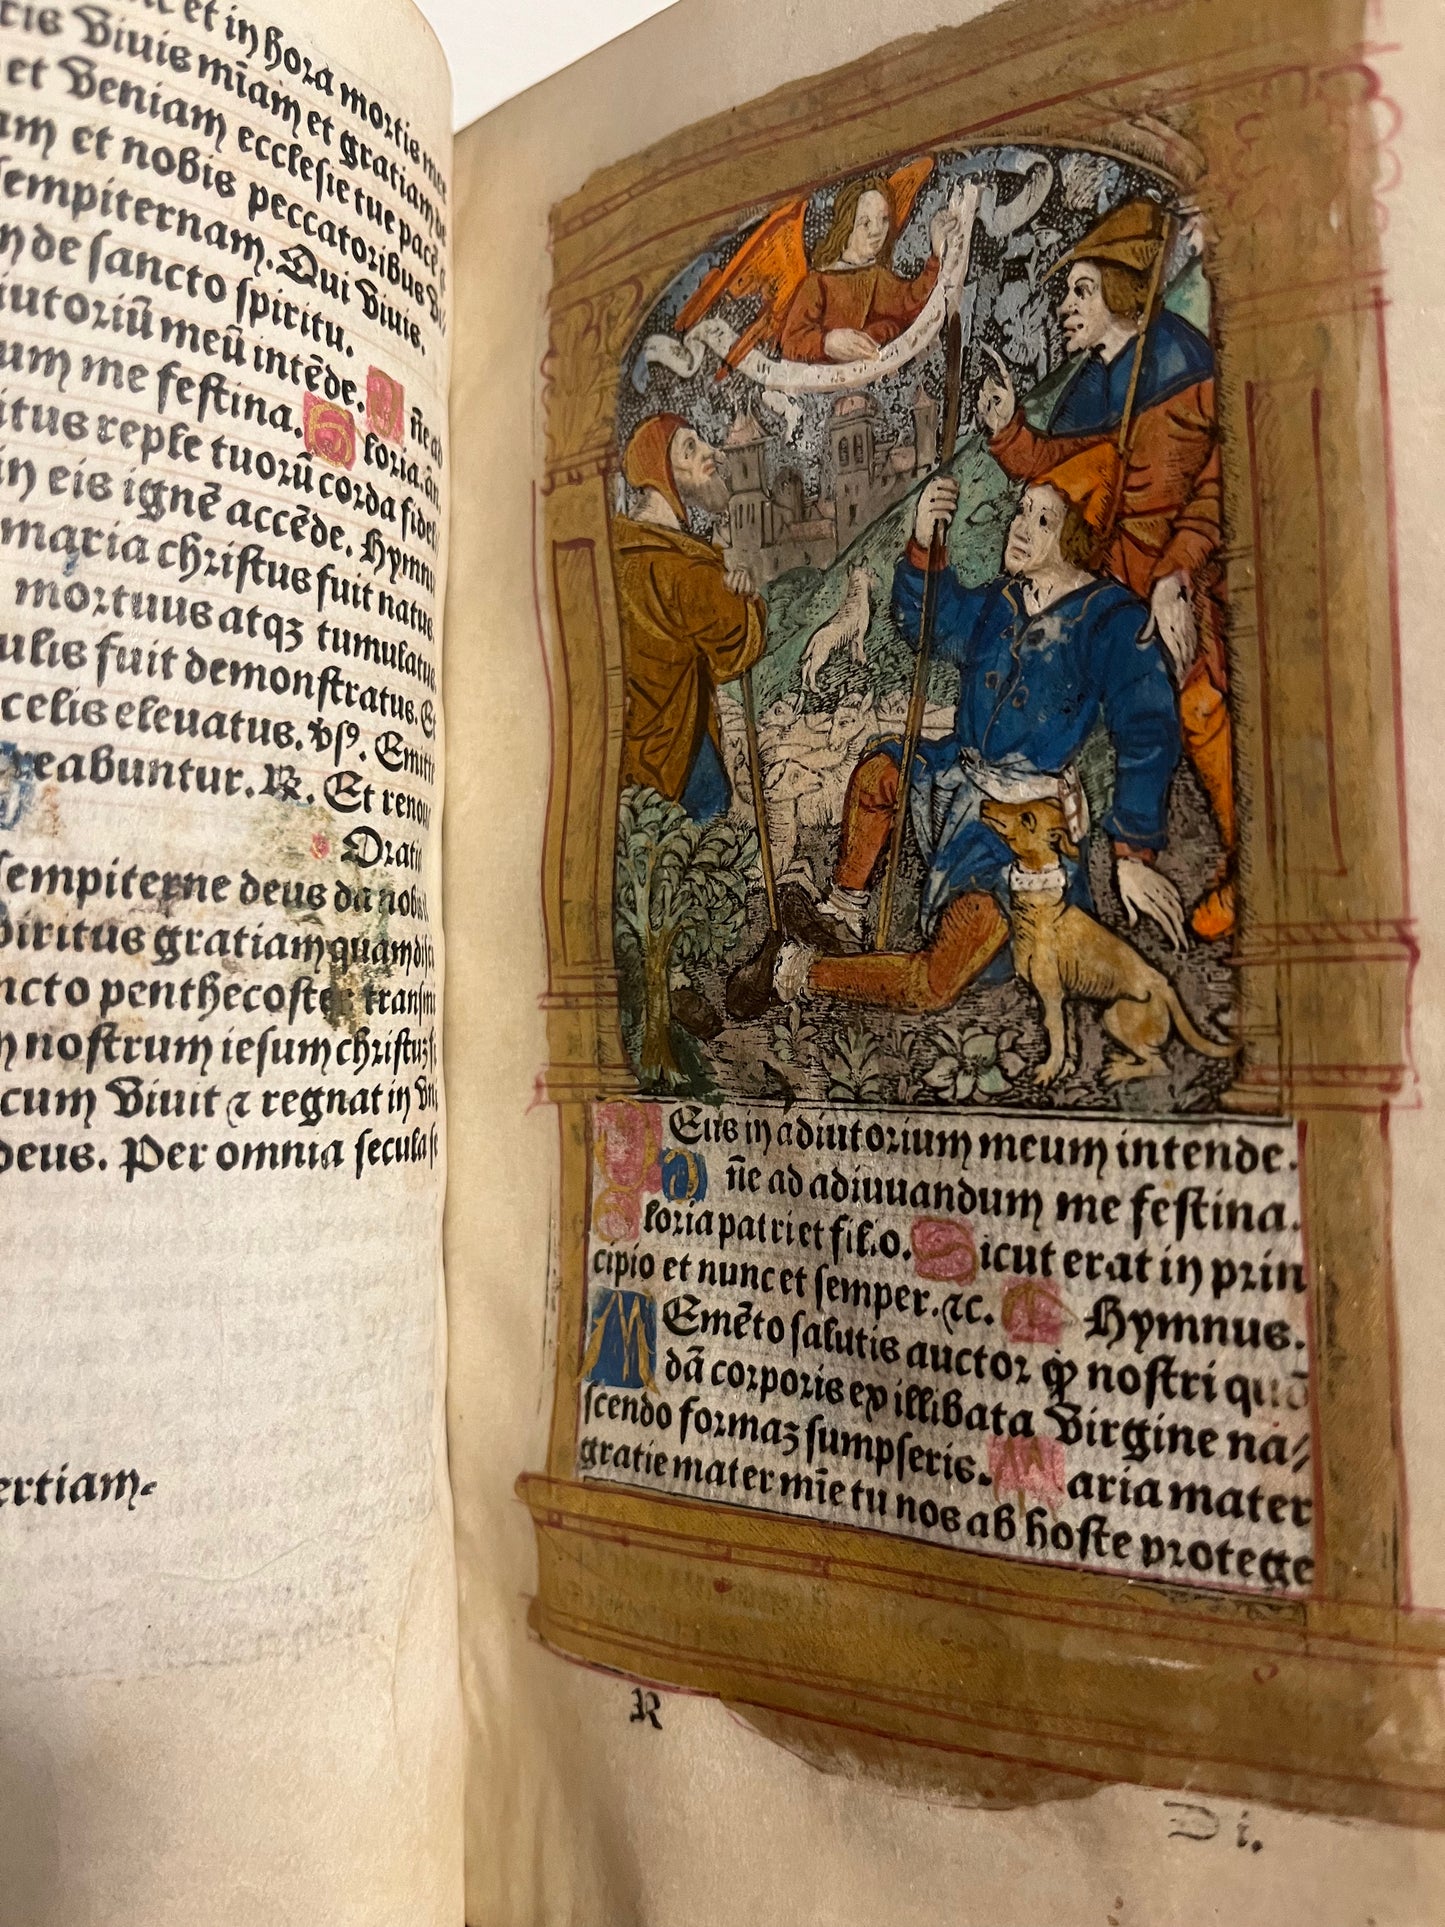 et in hora mortis
Viuis mīam et gratiam de
et Veniam ecclesie tue pacē
et nobis peccatoribus
sempiternam. Qui Viuis.
de sancto spiritu.
meū intēde. D ñe ad
me festina. G loria. āñ.
reple tuorū corda fidel
in eis ignē accēde. Hymnu
maria christus fuit natus.
mortuus atqꝫ tumulatus.
fuit demonstratus. Et
celis eleuatus. Emitte
reabuntur. ℟. Et renou
Oratio
sempiterne deus da nobis
gratiam quam
penthecostes transmi
nostrum iesum christuꝫ
cum Viuit ⁊ regnat in
deus. Per omnia secula
ertiam.
D Eus in adiutorium meum intende.
D ñe ad adiuuandum me festina.
G loria patri et filio. S icut erat in prin
cipio et nunc et semper. ⁊c. Hymnus.
M Emēto salutis auctor ꝙ nostri quō
dā corporis ex illibata Virgine na/
scendo formaꝫ sumpseris. M aria mater
gratie mater mīe tu nos ab hoste protege
R
D i.